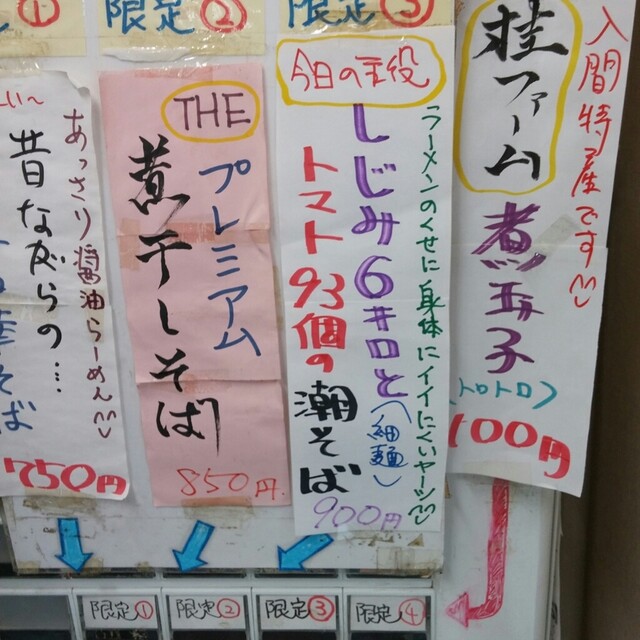 ①
限定②
限定③
入間特産です
桂ファーム
煮玉子
(トロトロ)
100円
今日の主役
ラーメンのくせに身体にイイにくいヤーツ
しじみ6キロと
トマト93個の
潮そば
(細麺)
900円
THE
プレミアム
煮干しそば
850円
あっさり醤油らーめん
昔ながらの…
そば
750円
限定①
限定②
限定③
限定④